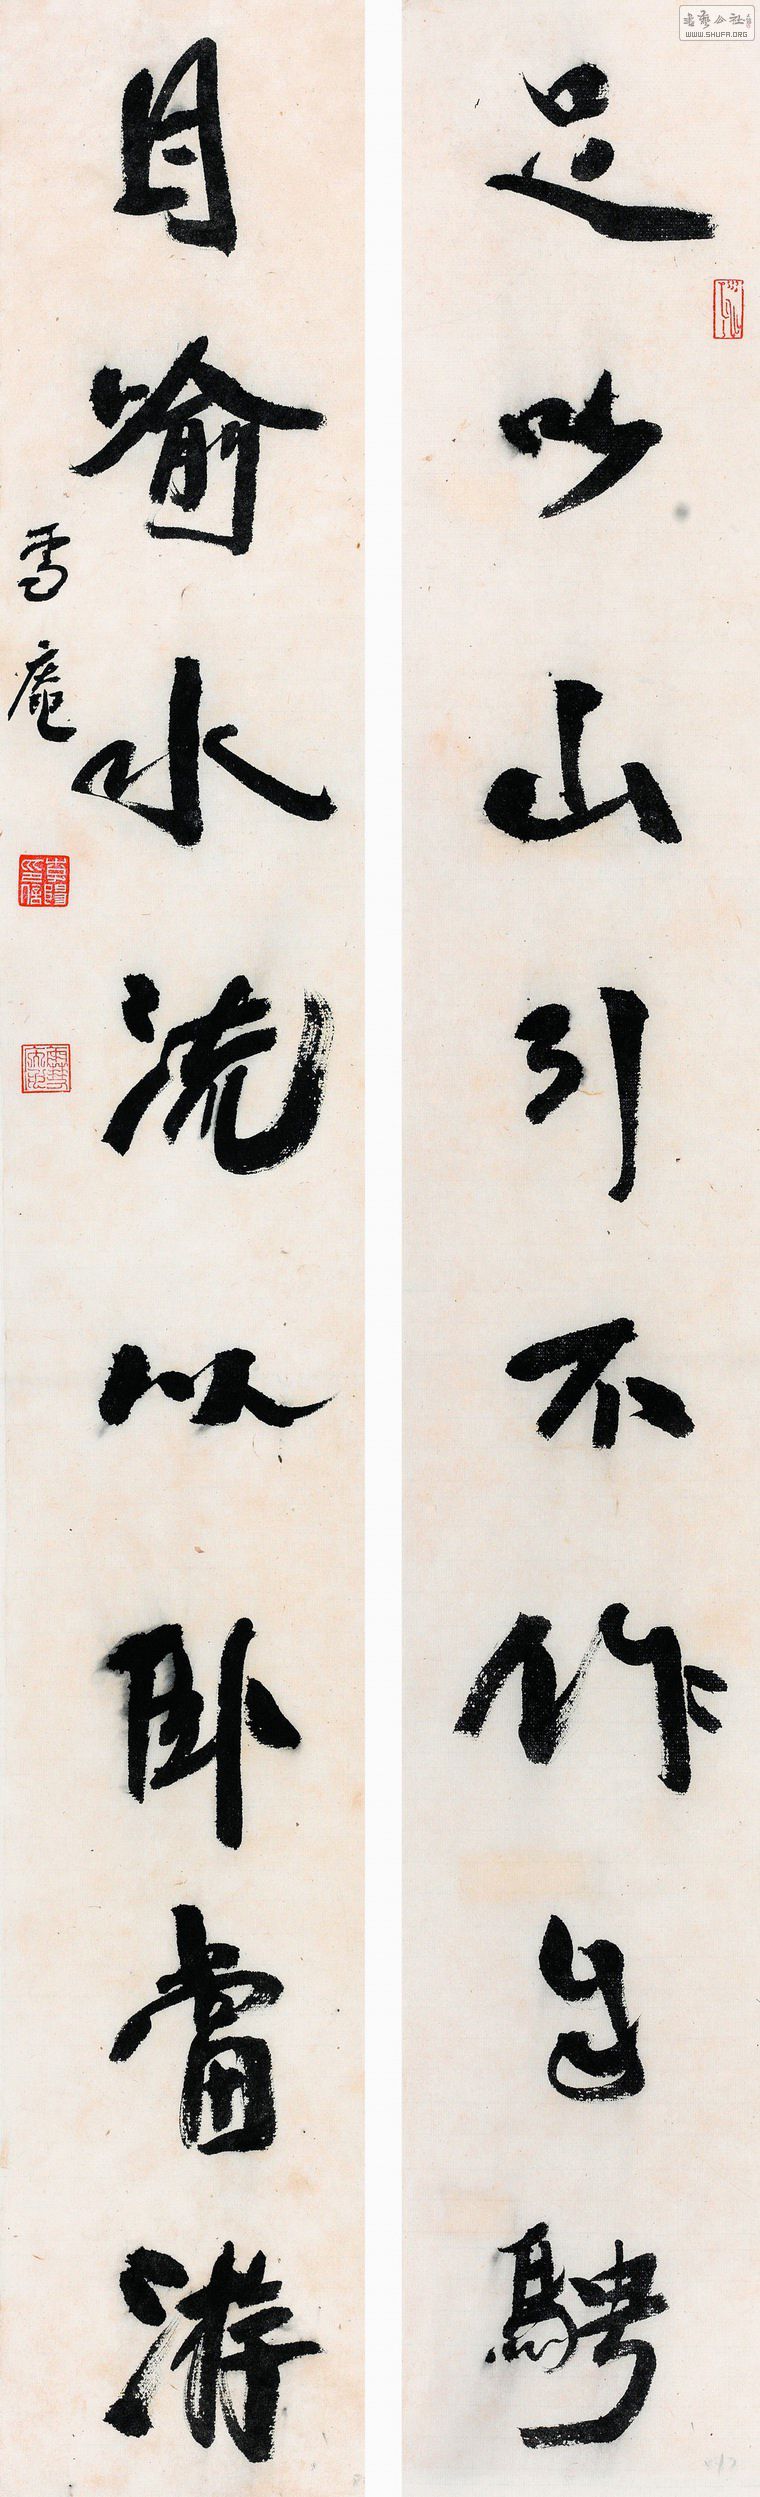 足以山引不作自騁
目喻水流以卧當游
雪庵
書藝公社
WWW.SHUFA.ORG